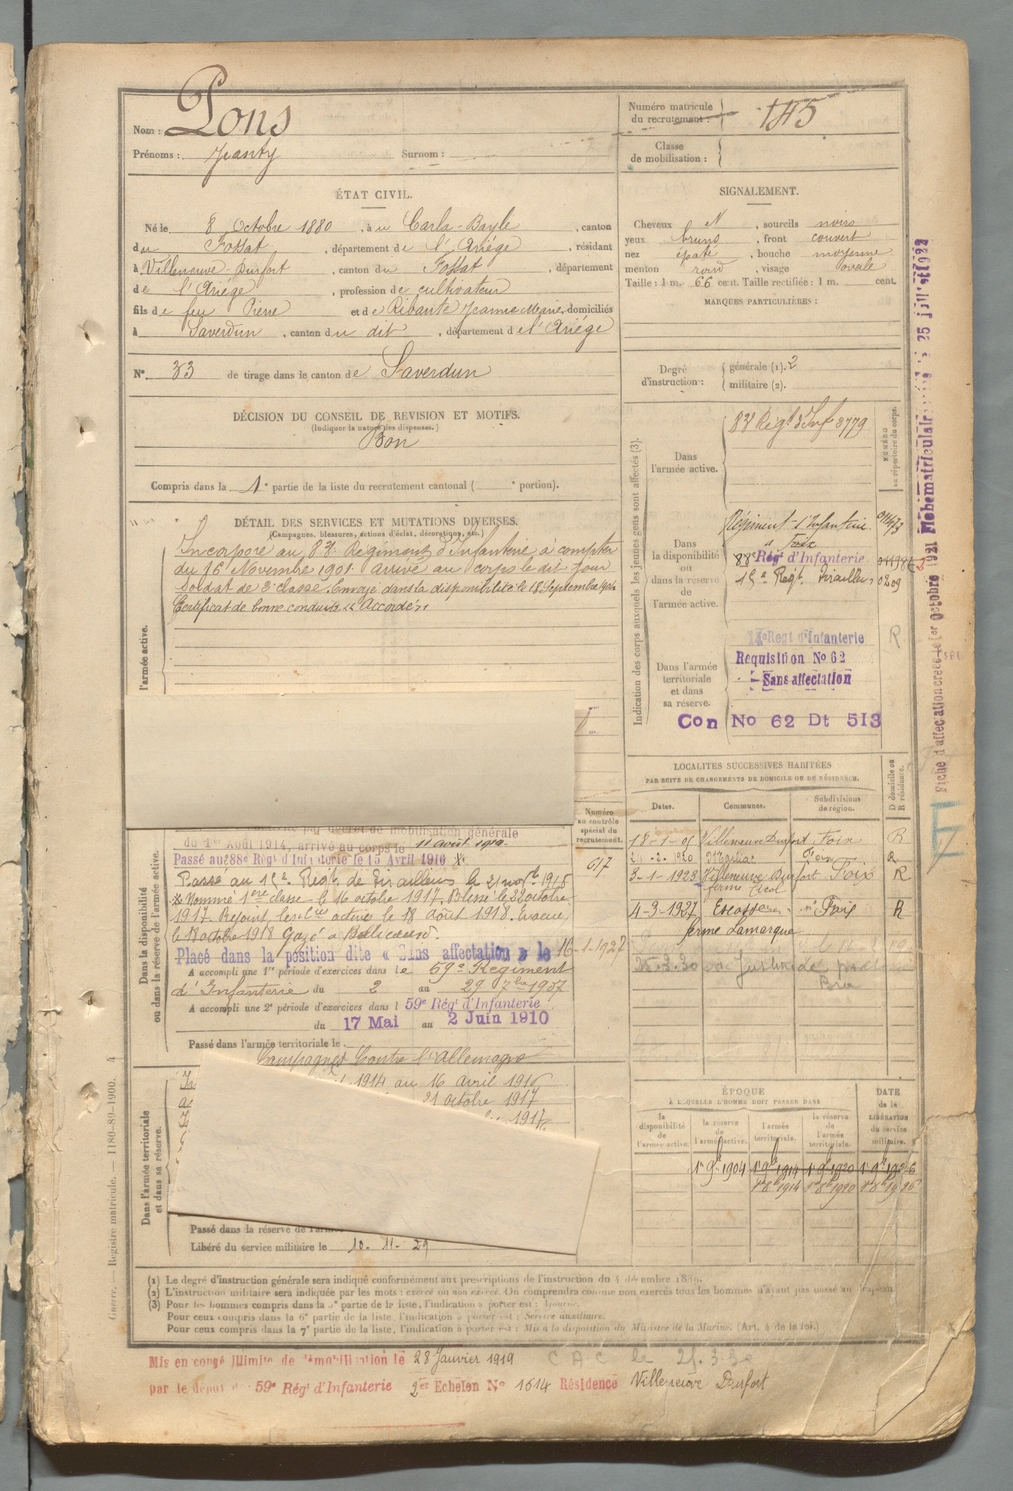 Nom : Pons
Prénoms : Jeanty Surnom :
Numéro matricule du recrutement : 145
Classe de mobilisation :
ÉTAT CIVIL.
Né le 8 Octobre 1880, à u Carla-Bayle, canton
du Fossat, département de l'Ariège, résidant
à Villeneuve-Durfort, canton du Fossat, département
de l'Ariège, profession de cultivateur
fils de feu Pierre et de Ribaute Jeanne Marie, domiciliés
à Saverdun, canton du dit, département de l'Ariége
N° 33 de tirage dans le canton de Saverdun
SIGNALEMENT.
Cheveux N, sourcils noirs
yeux bruns, front couvert
nez épaté, bouche moyenne
menton rond, visage ovale
Taille : 1 m. 66 cent. Taille rectifiée : 1 m. cent.
MARQUES PARTICULIÈRES :
Degré d'instruction : générale (1). 2
militaire (2).
DÉCISION DU CONSEIL DE REVISION ET MOTIFS.
(Indiquer la nature des dispenses.)
Bon
Compris dans la 1e partie de la liste du recrutement cantonal ( e portion).
DÉTAIL DES SERVICES ET MUTATIONS DIVERSES.
(Campagnes, blessures, actions d'éclat, décorations, etc.)
Incorporé au 83e Régiment d'Infanterie à compter
du 16 Novembre 1901. arrivé au corps le dit jour
soldat de 2e classe. Envoyé dans la disponibilité le 18 Septembre 1904
Certificat de bonne conduite "Accordé".
l'armée active.
Indication des corps auxquels les jeunes gens sont affectés (3).
NUMÉRO au répertoire du corps.
Dans l'armée active.
83e Régt d'Inf 3779
Dans la disponibilité ou dans la réserve de l'armée active.
Régiment d'Infanterie
à Foix
88e Régt d'Infanterie
Régt Tirailleurs 0209
Dans l'armée territoriale et dans sa réserve.
Regt d'Infanterie R
Requisition No 62
Sans affectation
Con No 62 Dt 513
LOCALITÉS SUCCESSIVES HABITÉES
PAR SUITE DE CHANGEMENTS DE DOMICILE OU DE RÉSIDENCE.
Dates. Communes. Subdivisions de région. D domicile ou R résidence.
18-1-06 Villeneuve Durfort Foix R
Foix R
3-1-1923 Villeneuve Durfort Foix R
4-3-1927 Foix R
ferme Lamarque
Numéro au contrôle spécial du recrutement.
617
Dans la disponibilité ou dans la réserve de l'armée active.
de mobilisation générale
du 1er Août 1914, arrivé au corps le 11 août 1914.
Passé au 88e Régt d'Infanterie le 15 Avril 1916
Passé au Régt de Tirailleurs le 21 1916
Nommé 1ère classe le 16 octobre 1917. Blessé le 22 octobre
1917. Rejoint le 18 Août 1918. Evacué
le 18 octobre 1918 Gazé
Placé dans la position dite « Sans affectation » le 16-1-1927
A accompli une 1re période d'exercices dans le 59e Régiment
d'Infanterie du 2 au 29 7bre 1907
A accompli une 2e période d'exercices dans l 59e Régt d'Infanterie
du 17 Mai au 2 Juin 1910
Passé dans l'armée territoriale le
Campagnes Contre l'Allemagne
Dans l'armée territoriale et dans sa réserve.
1914 au 16 avril 1916
21 octobre 1917
1917
Passé dans la réserve de l'ar
Libéré du service militaire le 10-11-29
ÉPOQUE
À LAQUELLE L'HOMME DOIT PASSER DANS
la disponibilité de l'armée active.
la réserve de l'armée active.
l'armée territoriale.
la réserve de l'armée territoriale.
DATE de la LIBÉRATION du service militaire.
1er 9b 1904 1er 9b 1914 1er 9b 1920 1er 9b 1926
1er 8b 1914 1er 8b 1920 1er 8b 1926
(1) Le degré d'instruction générale sera indiqué conformément aux prescriptions de l'instruction du 4 décembre 1889.
(2) L'instruction militaire sera indiquée par les mots : exercé ou non exercé. On comprendra comme non exercés tous les hommes n'ayant pas passé au drapeau.
(3) Pour les hommes compris dans la 5e partie de la liste, l'indication à porter est : Ajourné.
Pour ceux compris dans la 6e partie de la liste, l'indication à porter est : Service auxiliaire.
Pour ceux compris dans la 7e partie de la liste, l'indication à porter est : Mis à la disposition du Ministre de la Marine. (Art. 4 de la loi.)
Mis en congé illimité de démobilisation le 28 Janvier 1919
par le dépôt d 59e Régt d'Infanterie 2er Echelon N° 1614 Résidence Villeneuve Durfort
Guerre. — Registre matricule. — 1180-89-1900.
Fiche d'affectation créée le 1er Octobre 1921